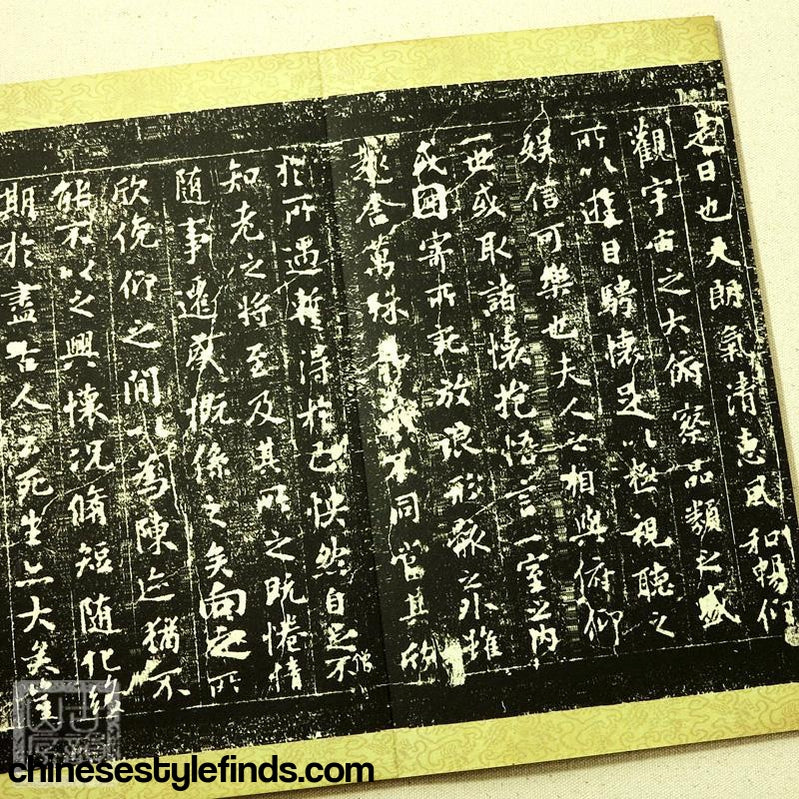 是日也天朗氣清惠風和暢仰
觀宇宙之大俯察品類之盛
所以遊目騁懷足以極視聽之
娛信可樂也夫人之相與俯仰
一世或取諸懷抱悟言一室之內
或因寄所託放浪形骸之外雖
趣舍萬殊靜躁不同當其欣
於所遇暫得於己怏然自足不
知老之將至及其所之既惓情
隨事遷感慨係之矣向之所
欣俛仰之閒以為陳迹猶不
能不以之興懷況脩短隨化終
期於盡古人云死生亦大矣豈
僧
chinesestylefinds.com